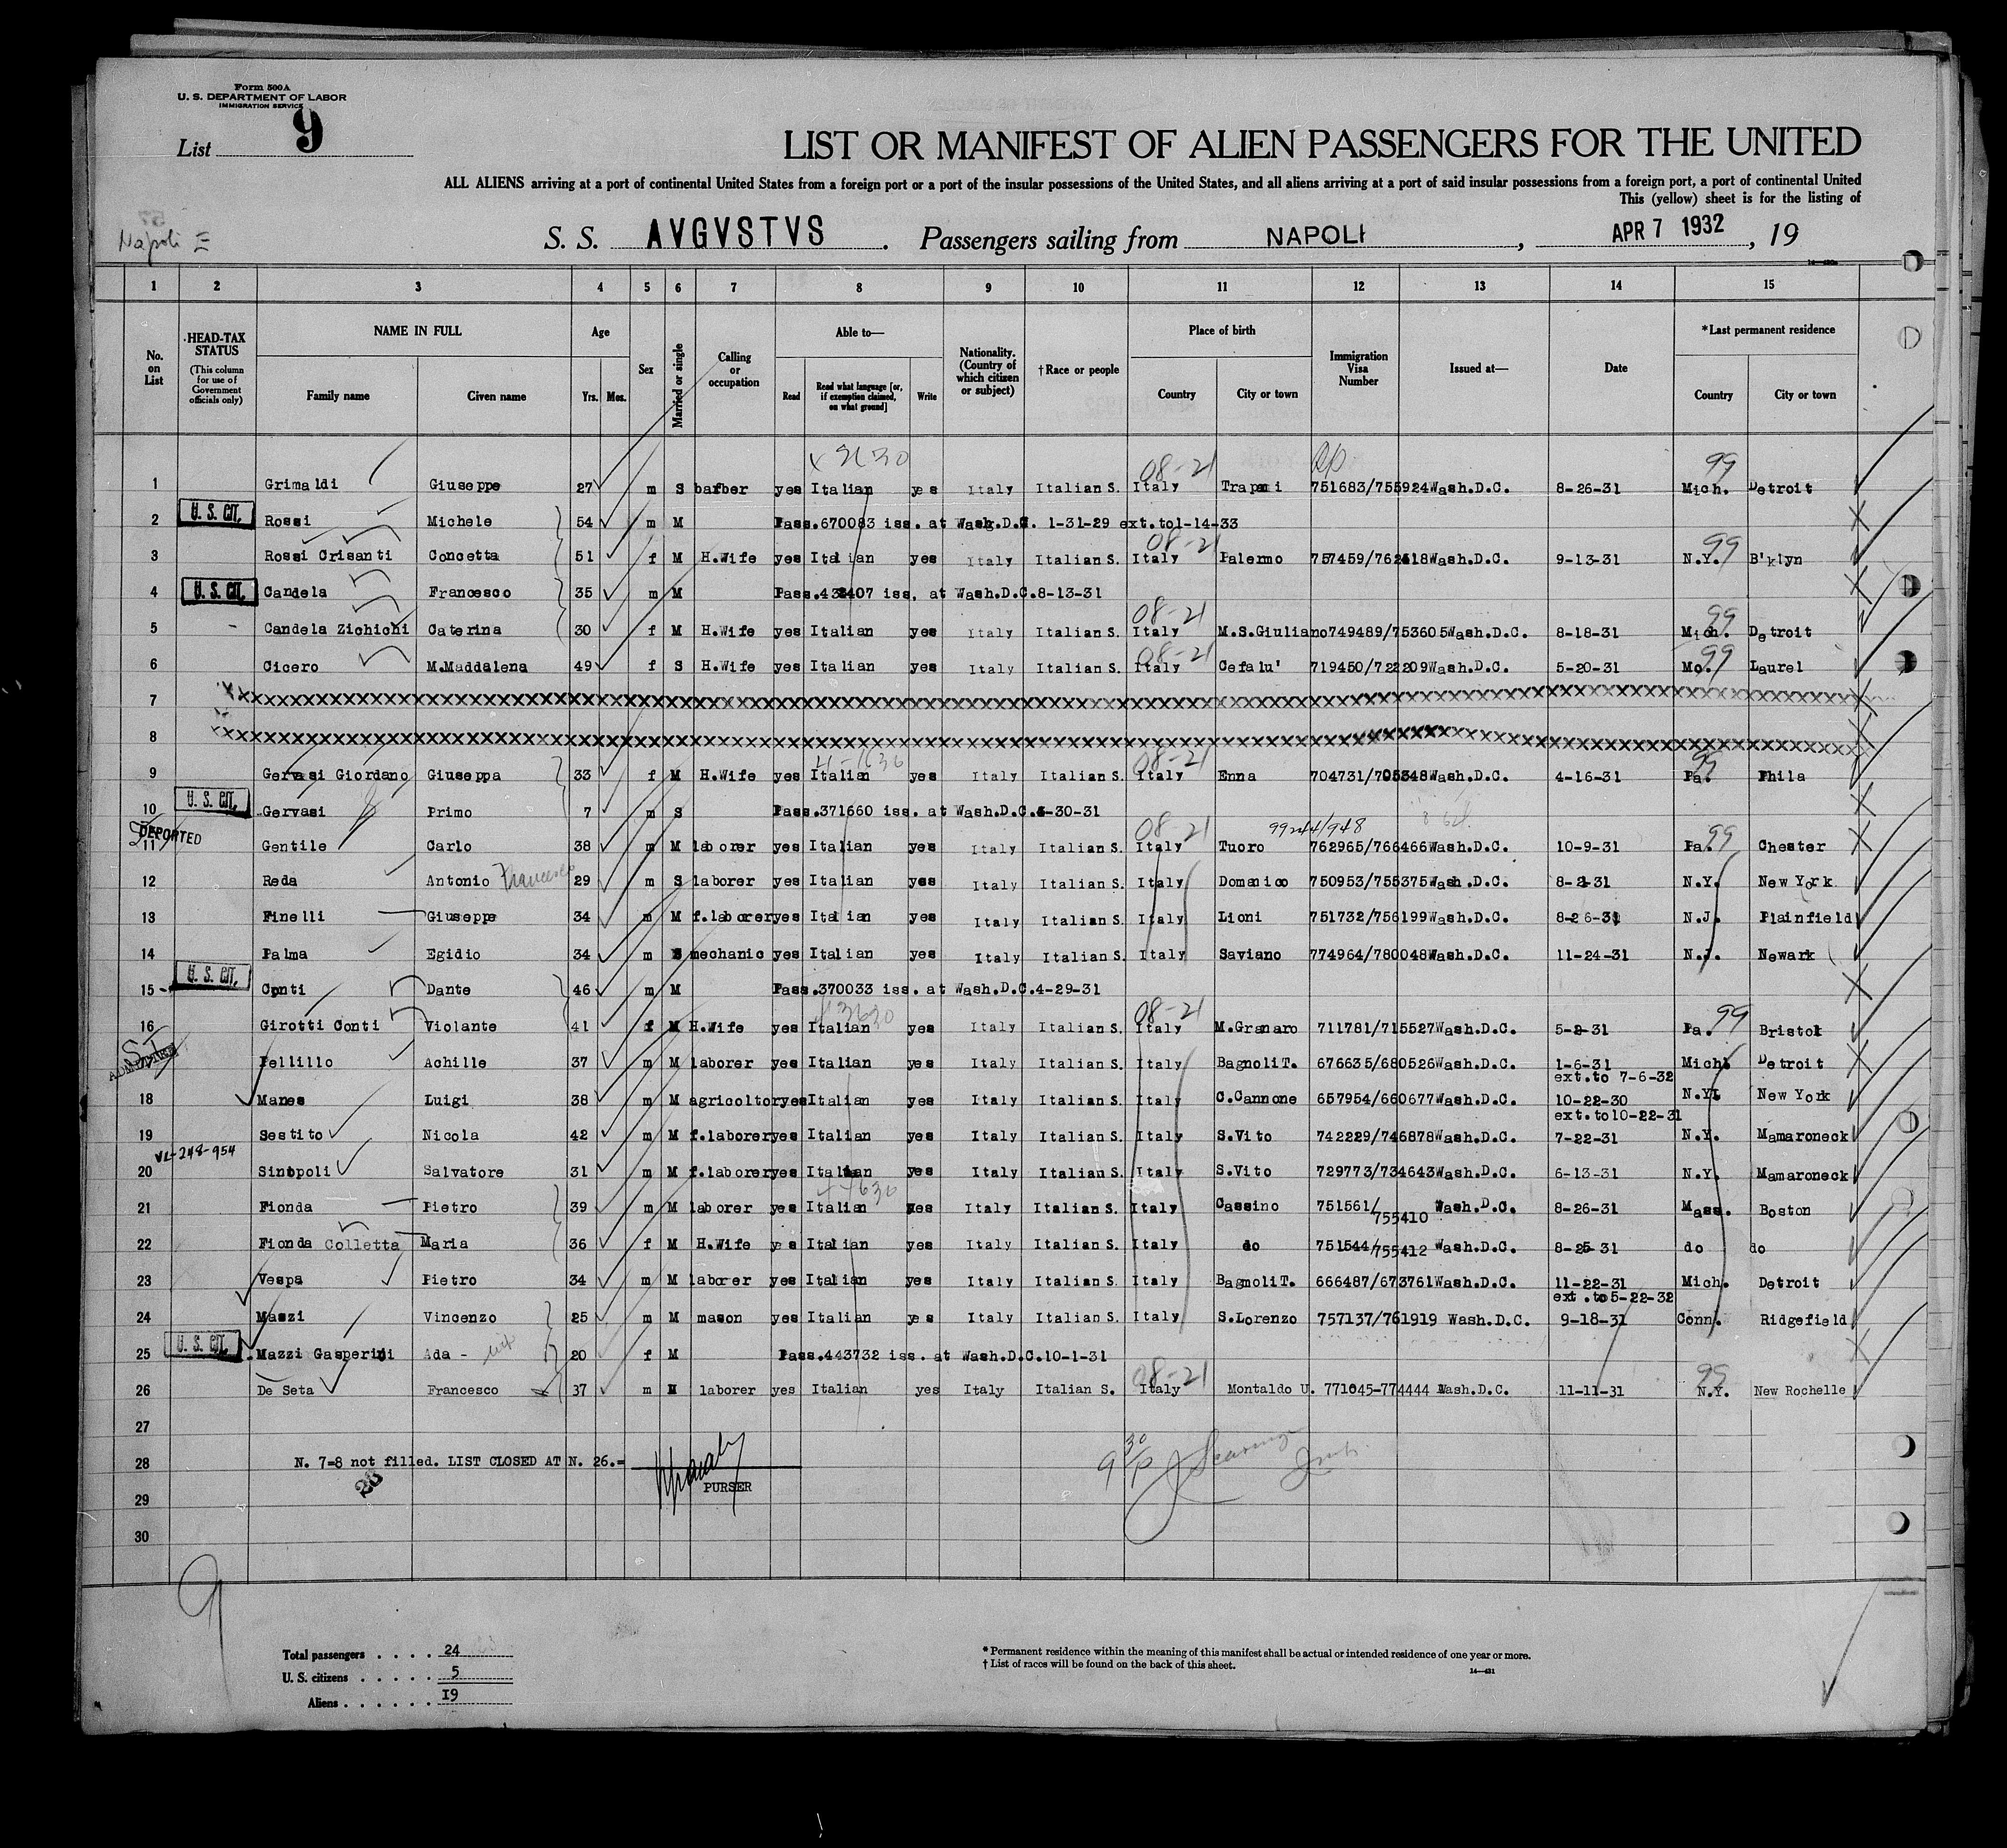 Form 500A
U. S. DEPARTMENT OF LABOR
IMMIGRATION SERVICE
List 9
LIST OR MANIFEST OF ALIEN PASSENGERS FOR THE UNITED
ALL ALIENS arriving at a port of continental United States from a foreign port or a port of the insular possessions of the United States, and all aliens arriving at a port of said insular possessions from a foreign port, a port of continental United
This (yellow) sheet is for the listing of
Napoli
S. S. AVGVSTVS . Passengers sailing from NAPOLI , APR 7 1932 , 19
1 2 3 4 5 6 7 8 9 10 11 12 13 14 15
No. on List
HEAD-TAX STATUS (This column for use of Government officials only)
NAME IN FULL Family name Given name
Age Yrs. Mos.
Sex
Married or single
Calling or occupation
Able to— Read Read what language [or, if exemption claimed, on what ground] Write
Nationality. (Country of which citizen or subject)
†Race or people
Place of birth Country City or town
Immigration Visa Number
Issued at—
Date
*Last permanent residence Country City or town
08-21 99
1 Grimaldi Giuseppe 27 m S barber yes Italian yes Italy Italian S. Italy Trapani 751683/755924 Wash.D.C. 8-26-31 Mich. Detroit
2 U. S. CIT. Rossi Michele 54 m M Pass.670083 iss. at Wash.D.C. 1-31-29 ext.to1-14-33
08-21 99
3 Rossi Crisanti Concetta 51 f M H.Wife yes Italian yes Italy Italian S. Italy Palermo Wash.D.C. 9-13-31 N.Y. B'klyn
4 U. S. CIT. Candela Francesco 35 m M iss. at Wash.D.C.8-13-31
08-21 99
5 Candela Zichichi Caterina 30 f M H.Wife yes Italian yes Italy Italian S. Italy M.S.Giuliano 749489/753605 Wash.D.C. 8-18-31 Mich. Detroit
08-21 99
6 Cicero M.Maddalena 49 f S H.Wife yes Italian yes Italy Italian S. Italy Cefalu' 719450/722209 Wash.D.C. 5-20-31 Mo. Laurel
7
8
08-21 99
9 Gervasi Giordano Giuseppa 33 f M H.Wife yes Italian yes Italy Italian S. Italy Enna 704731/705348 Wash.D.C. 4-16-31 Pa. Phila
10 U. S. CIT. Gervasi Primo 7 m S Pass.371660 iss. at Wash.D.C.
DEPORTED 08-21 99
11 Gentile Carlo 38 m M laborer yes Italian yes Italy Italian S. Italy Tuoro 762965/766466 Wash.D.C. 10-9-31 Pa. Chester
12 Reda Antonio Francesco 29 m S laborer yes Italian yes Italy Italian S. Italy Domanico 750953/755375 Wash.D.C. N.Y. New York
13 Finelli Giuseppe 34 m M f.laborer yes Italian yes Italy Italian S. Italy Lioni 751732/756199 Wash.D.C. 8-26-31 N.J. Plainfield
14 Palma Egidio 34 m S mechanic yes Italian yes Italy Italian S. Italy Saviano 774964/780048 Wash.D.C. 11-24-31 N.J. Newark
15 U. S. CIT. Conti Dante 46 m M Pass.370033 iss. at Wash.D.C.4-29-31
08-21 99
16 Girotti Conti Violante 41 f M H.Wife yes Italian yes Italy Italian S. Italy M.Granaro 711781/715527 Wash.D.C. 5-2-31 Pa. Bristol
S.I. ADMITTED
17 Pellillo Achille 37 m M laborer yes Italian yes Italy Italian S. Italy BagnoliT. 676635/680526 Wash.D.C. 1-6-31 Mich. Detroit
ext.to 7-6-32
18 Manes Luigi 38 m M agricoltor yes Italian yes Italy Italian S. Italy C.Cannone 657954/660677 Wash.D.C. 10-22-30 N.Y. New York
ext.to10-22-31
19 Sestito Nicola 42 m M f.laborer yes Italian yes Italy Italian S. Italy S.Vito 742229/746878 Wash.D.C. 7-22-31 N.Y. Mamaroneck
VL-248-954
20 Sinopoli Salvatore 31 m M f.laborer yes Italian yes Italy Italian S. Italy S.Vito 729773/734643 Wash.D.C. 6-13-31 N.Y. Mamaroneck
21 Fionda Pietro 39 m M laborer yes Italian yes Italy Italian S. Italy Cassino 751561/755410 Wash.D.C. 8-26-31 Mass. Boston
22 Fionda Colletta Maria 36 f M H.Wife yes Italian yes Italy Italian S. Italy do 751544/755412 Wash.D.C. 8-25-31 do do
23 Vespa Pietro 34 m M laborer yes Italian yes Italy Italian S. Italy BagnoliT. 666487/673761 Wash.D.C. 11-22-31 Mich. Detroit
ext.to5-22-32
24 Mazzi Vincenzo 25 m M mason yes Italian yes Italy Italian S. Italy S.Lorenzo 757137/761919 Wash.D.C. 9-18-31 Conn. Ridgefield
25 U. S. CIT. Mazzi Gasperini Ada - 20 f M Pass.443732 iss. at Wash.D.C.10-1-31
08-21 99
26 De Seta Francesco 37 m M laborer yes Italian yes Italy Italian S. Italy Montaldo U. 771045-774444 Wash.D.C. 11-11-31 N.Y. New Rochelle
27
28 N. 7-8 not filled. LIST CLOSED AT N. 26.=
PURSER
29
30
9
Total passengers . . . . 24
U. S. citizens . . . . . 5
Aliens . . . . . . 19
* Permanent residence within the meaning of this manifest shall be actual or intended residence of one year or more.
† List of races will be found on the back of this sheet.
14—431